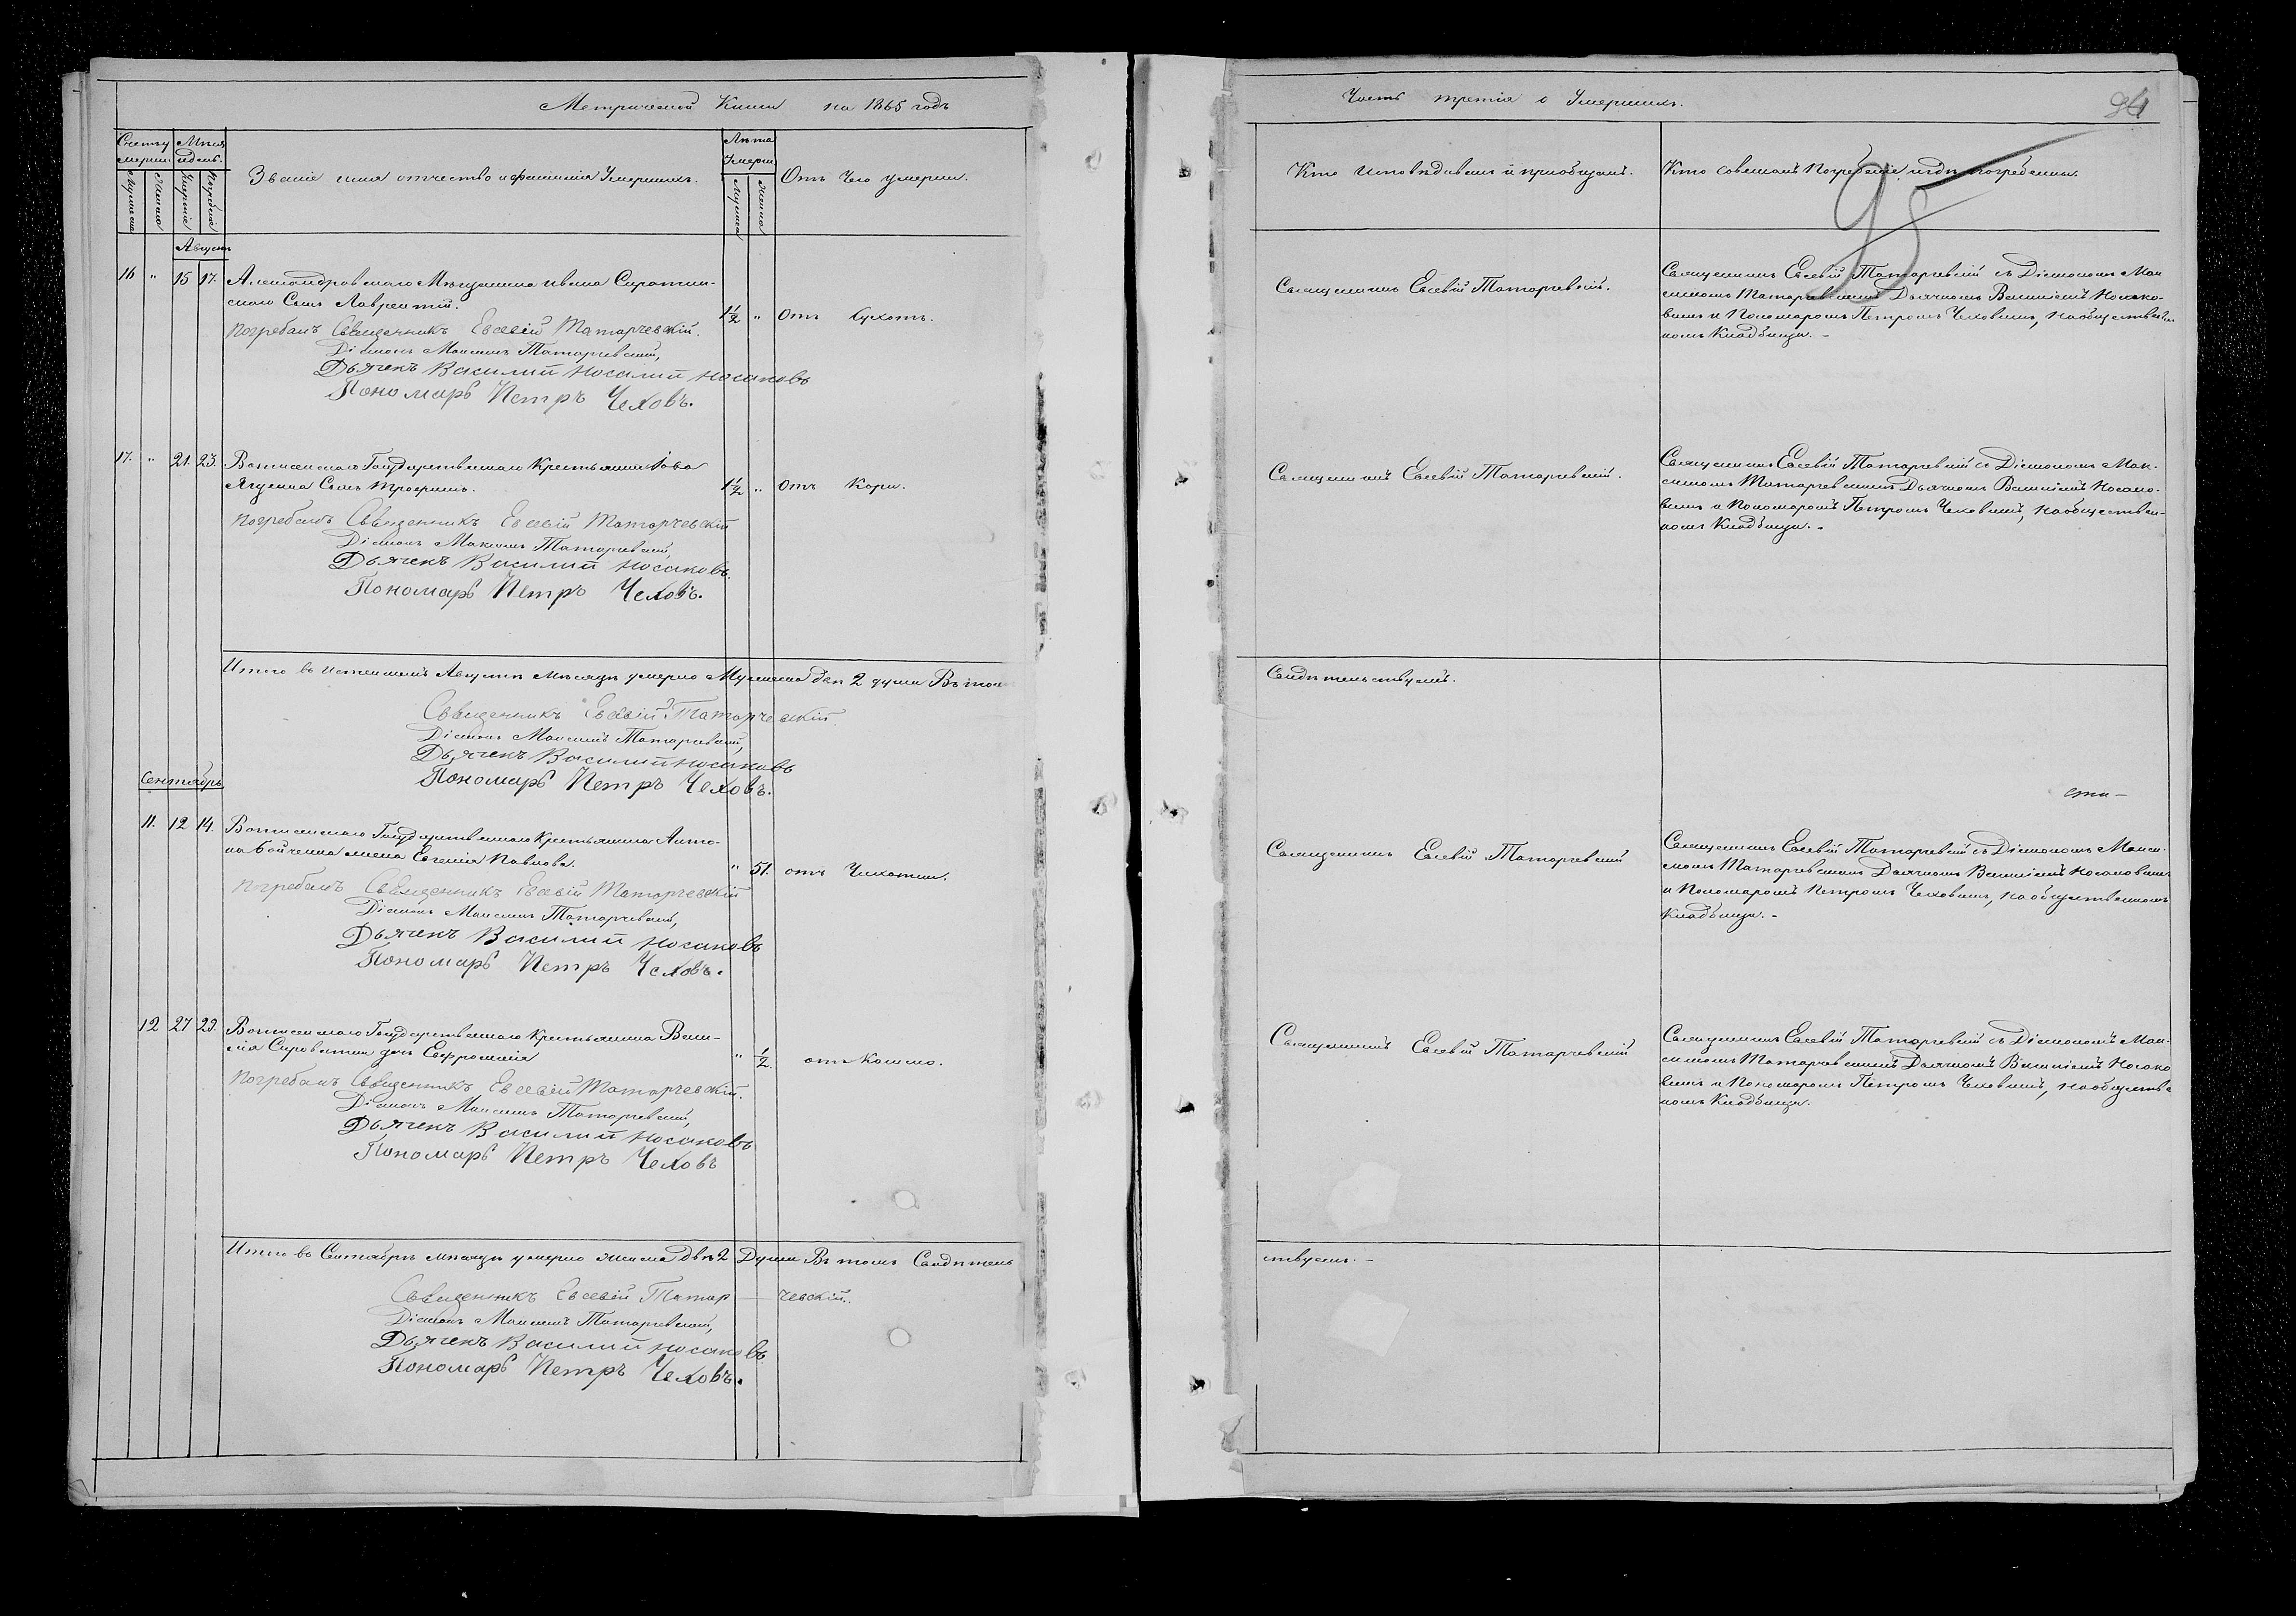 Метрической Книги на 1865 годъ
Счетъ умерш. Мѣсяцъ и день. Звание имя отчество и фамилия Умершихъ. Лѣта Умерш. Отъ Чего умерли.
Мужеска Женска Умертия Погребения Мужска Женска
Августъ
16 " 15 17. Александровскаго Мѣщанина Ивана Сиротин-
скаго Сынъ Лаврентій. 1½ " Отъ Сухотъ.
Погребалъ Священникъ Евсевій Татарчевскій.
Діаконъ Максимъ Татарчевскій,
Дьячекъ Василий Носалий Носаковъ
Пономарь Петръ Чеховъ.
17. " 21. 23. Государственнаго Крестьянина Іова
Ягденка Сынъ Трофимъ. 1½ " Отъ Кори.
Погребалъ Священникъ Евсевій Татарчевскій
Діаконъ Максимъ Татарчевскій,
Дьячекъ Василий Носаковъ.
Пономарь Петръ Чеховъ.
Итого въ Августѣ Мѣсяцѣ умерло Мужеска двѣ 2 души Въ том
Священникъ Евсевій Татарчевскій.
Діаконъ Максимъ Татарчевскій,
Дьячекъ Василий Носаковъ
Пономарь Петръ Чеховъ.
Сентябрь
11. 12 14. Государственнаго Крестьянина Анто-
на Бойченка жена Евгенія Павлова. " 51. отъ Чихотки.
Погребалъ Священникъ Евсевій Татарчевскій
Діаконъ Максимъ Татарчевскій,
Дьячекъ Василий Носаковъ
Пономарь Петръ Чеховъ.
12 27 29. Государственнаго Крестьянина Васи-
лія Сироватки дочь Евфросинія " ½. отъ Кашлю.
Погребалъ Священникъ Евсевій Татарчевскій.
Діаконъ Максимъ Татарчевскій,
Дьячекъ Василий Носаковъ
Пономарь Петръ Чеховъ
Итого въ Сентябрѣ мѣсяцѣ умерло женска Двѣ 2 Души Въ томъ Свидѣтель
Священникъ Евсевій Татарчевскій.
Діаконъ Максимъ Татарчевскій,
Дьячекъ Василий Носаковъ
Пономарь Петръ Чеховъ.
Часть третія о Умершихъ. 94
95
Кто исповѣдывалъ и приобщалъ. Кто совершалъ Погребеніе и гдѣ погребены.
Священникъ Евсевій Татарчевскій. Священникъ Евсевій Татарчевскій съ Діакономъ Мак
симомъ Татарчевскимъ Дьячкомъ Василіемъ Носако-
вымъ и Пономаремъ Петромъ Чеховымъ, На обществен
номъ Кладбищи. -
Священникъ Евсевій Татарчевскій. Священникъ Евсевій Татарчевскій съ Діакономъ Мак-
симомъ Татарчевскимъ Дьячкомъ Василіемъ Носако-
вымъ и Пономаремъ Петромъ Чеховымъ, На обществен-
номъ Кладбищи. -
Свидѣтельствуемъ.
Священникъ Евсевій Татарчевскій Священникъ Евсевій Татарчевскій съ Діакономъ Макси-
момъ Татарчевскимъ Дьячкомъ Василіемъ Носаковымъ
и Пономаремъ Петромъ Чеховымъ, На общественномъ
Кладбищи. -
Священникъ Евсевій Татарчевскій Священникъ Евсевій Татарчевскій съ Діакономъ Мак-
симомъ Татарчевскимъ Дьячкомъ Василіемъ Носако
вымъ и Пономаремъ Петромъ Чеховымъ, На обществе
номъ Кладбищи.
ствуемъ. -